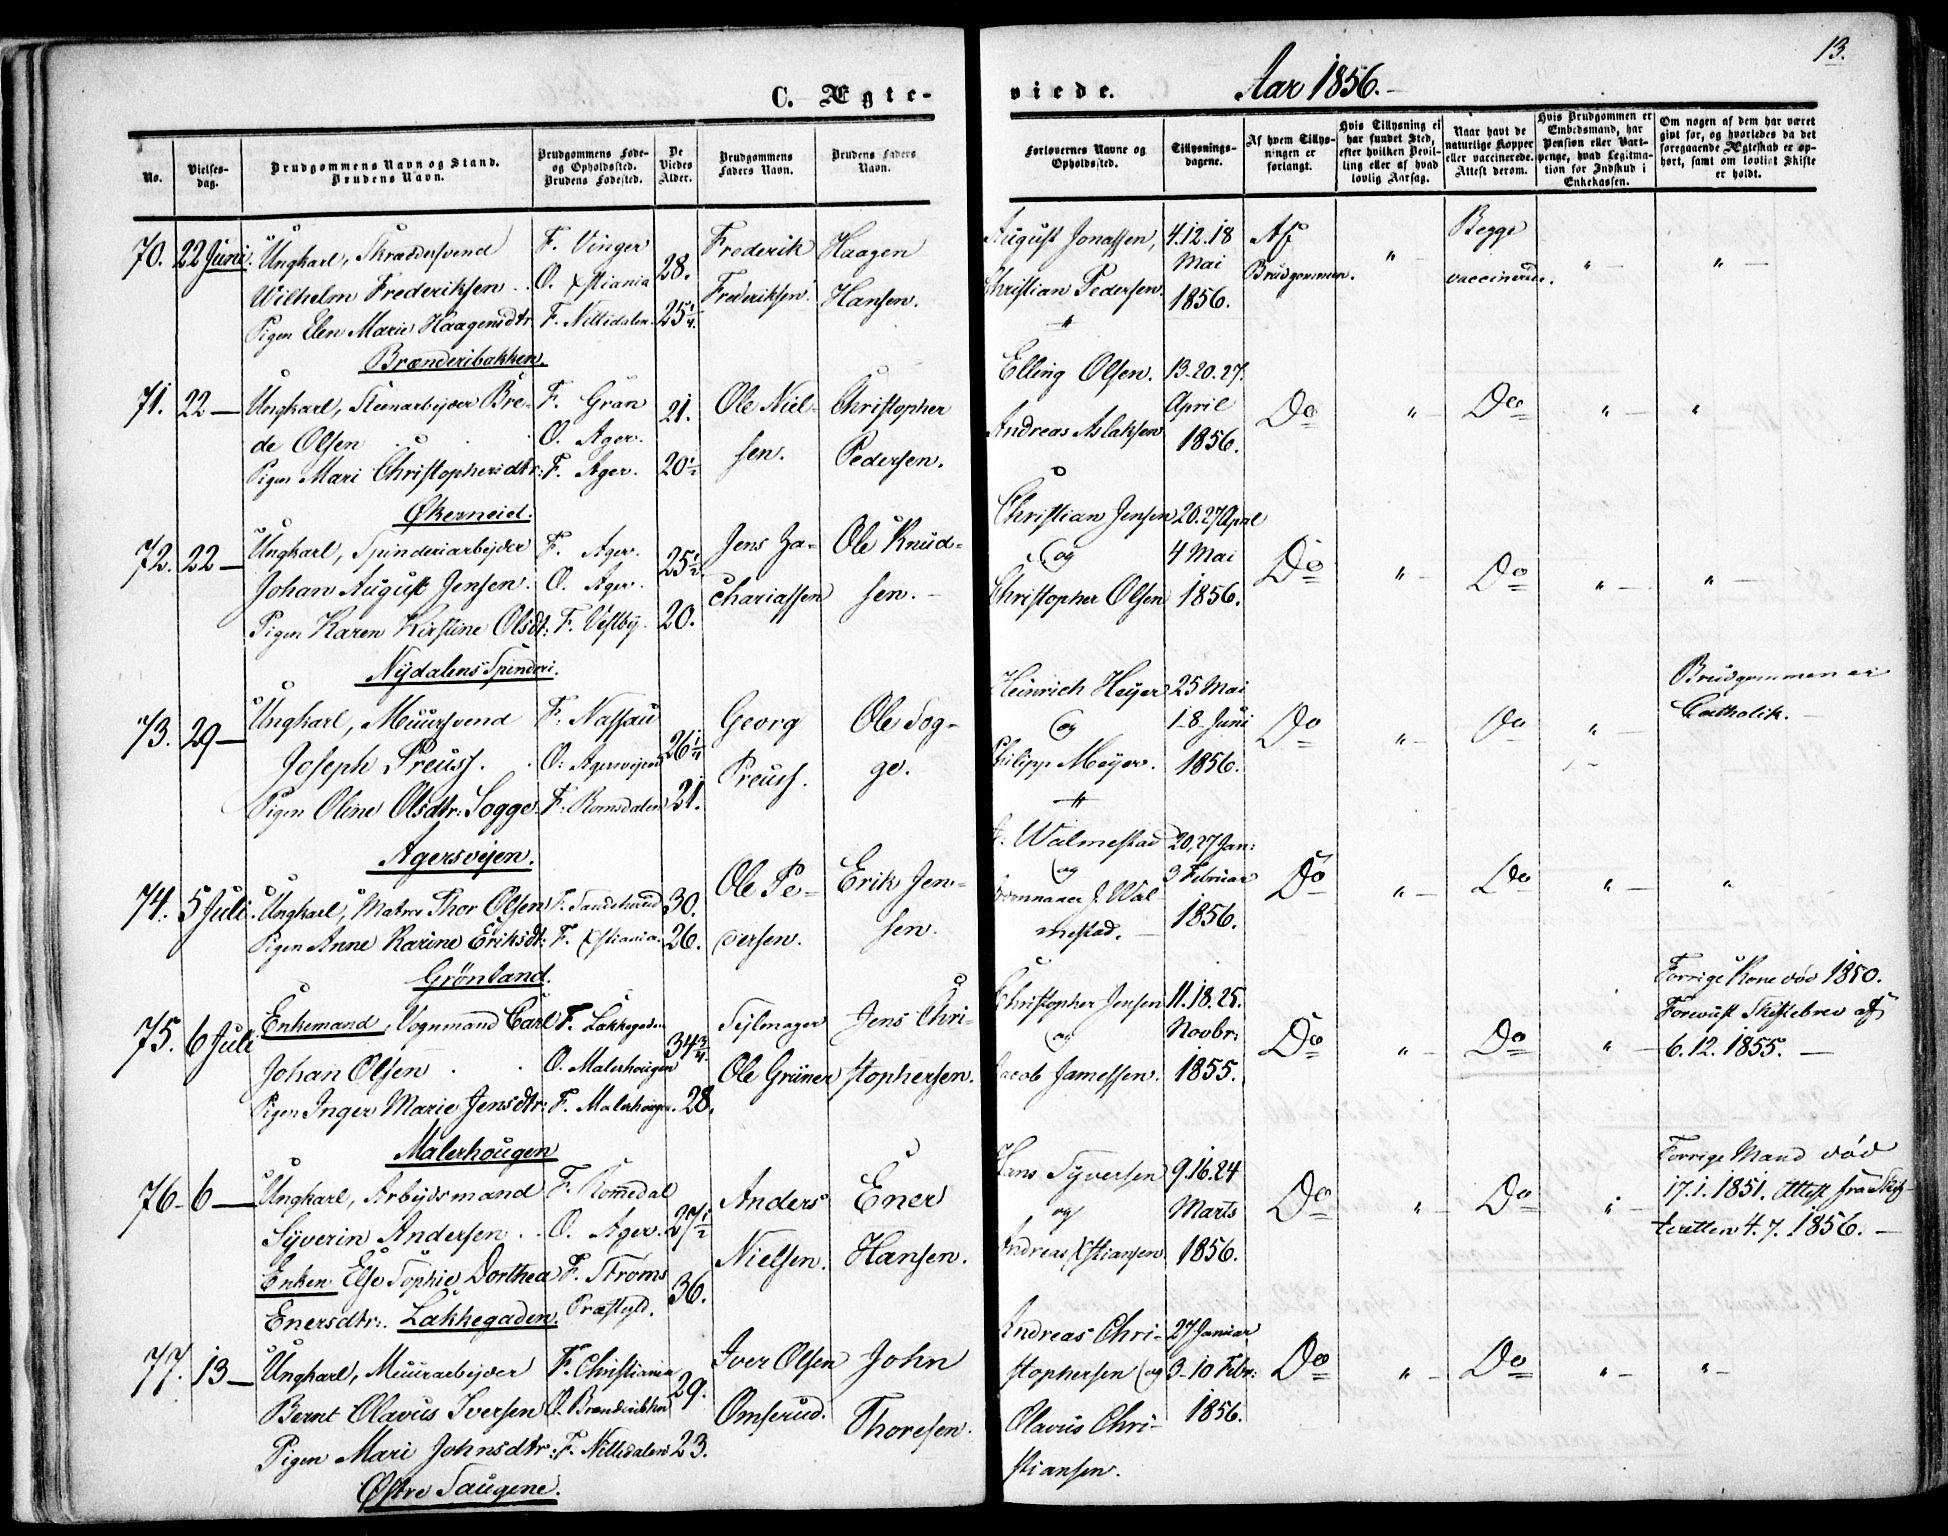 13.
C. Ægte-
viede. Aar 1856.
No.
Vielses-
dag.
Brudgommens Navn og Stand.
Brudens Navn.
Brudgommens Føde-
og Opholdsted.
Brudens Fødested.
De
Viedes
Alder.
Brudgommens
Faders Navn.
Brudens Faders
Navn.
Forlovernes Navne og
Opholdssted.
Tillysnings-
dagene.
Af hvem Tillys-
ningen er
forlangt.
Hvis Tillysning ei
har fundet Sted,
efter hvilken Bevil-
ling eller af hvad
lovlig Aarsag.
Naar havt de
naturlige Kopper
eller vaccinerede.
Attest derom.
Hvis Brudgommen er
Embedsmand, har
Pension eller Vart-
penge, hvad Legitima-
tion for Indskud i
Enkekassen.
Om nogen af dem har været
gift før, og hvorledes da det
foregaaende Ægteskab er op-
hørt, samt om lovligt Skifte
er holdt.
70. 22 Juni. Ungkarl, Skræddersvend
Wilhelm Frederiksen
Pigen Elen Marie Haagensdtr
Brænderibakken.
F. Vinger
O. Xstiania
F. Nittedalen.
28.
25 1/4.
Frederik
Frederiksen.
Haagen
Hansen.
August Jonassen,
Christian Pedersen.
4.12.18
Mai
1856.
Af
Brudgommen.
" -
Begge
vaccinerede.
" -
" -
71. 22 - Ungkarl, Steenarbejder Bre-
de Olsen
Pigen Mari Christophersdtr:
Økerneiet.
F. Gran
O. Ager.
F. Ager.
21.
20 1/2
Ole Niel-
sen.
Christopher
Pedersen.
Elling Olsen.
Andreas Aslaksen
13.20.27.
April
1856.
Do
" -
Do
" -
"
72. 22 - Ungkarl, Spinderiarbejder
Johan August Jensen.
Pigen Karen Kirstine Olsdt:
Nÿdalens Spinderi.
F. Ager.
O. Ager.
F. Vestbÿ.
25 1/2.
20.
Jens Za-
chariassen
Ole Knud-
sen.
Christian Jensen
og
Christopher Olsen
20.27 April
4 Mai
1856.
Do
" -
Do
" -
" -
73. 29 - Ungkarl, Muursvend
Joseph Preuss.
Pigen Oline Olsdtr: Sogge.
Agersvejen.
F. Nassau
O. Agersvejen
F. Romsdalen
26 1/4
21.
Georg
Preuss.
Ole Sog-
ge.
Heinrich Heyer
og
Philipp Meÿer.
25 Mai
1-8- Juni
1856.
Do
" -
Do
" -
Brudgommen er
Catholik.
74. 5 Juli. Ungkarl, Matros Thor Olsen
Pigen Anne Karine Eriksdt:
Grönland.
F. Xstiania.
30.
26.
Ole Pe-
dersen.
Erik Jen-
sen.
Walmestad
og
J. Wal
mestad.
20,27 Jan:
3 Februar
1856.
Do
" -
Do
" -
"
75. 6 Juli Enkemand, Vognmand Carl
Johan Olsen
Pigen Inger Marie Jensdtr:
Malerhougen
F. Lakkegaden
O. Malerhougen
F. Malerhougen.
34 3/4.
28.
Sejlmager
Ole Grüner
Jens Chri-
stophersen.
Christopher Jensen
og
Jacob Jamessen.
11.18.25.
Novbr:
1855.
Do
" -
Do
" -
Forrige Kone död 1850.
Forevist Skiftebrev af
6.12.1855.
76. 6 - Ungkarl, Arbejdsmand
Sÿverin Andersen
Enken Else Sophie Dorthea
Enersdtr: Lakkegaden.
F. Romedal
O. Ager.
F. Ströms
Præstgld.
27 1/2
36.
Anders
Nielsen.
Ener
Hansen.
Hans Syversen
og
Andreas Xstiansen
9.16.24
Marts
1856.
Do
" -
Do
" -
Forrige Mand död
17.1.1851. Attest fra Skif-
teretten 4.7.1856.
77. 13 - Ungkarl, Muurarbejder
Bernt Olavus Iversen
Pigen Mari Johnsdtr:
Østre Saugene.
F. Christiania
O. Brænderibkn
F. Nittedalen
29.
23.
Iver Olsen
Omserud.
John
Thoresen.
Andreas Chri-
stophersen og
Olavus Chri-
stiansen.
27 Januar
3-10 Febr:
1856.
Do
" -
Do
" -
" -